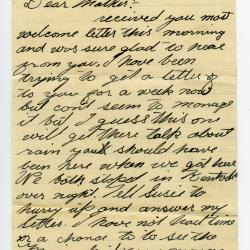 Dear Mother:-
received you most
welcome letter this morning
and was sure glad to hear
from you. I have been
trying to get a letter of
to you for a week now
but cont seem to manage
it but I guess this one
will get there talk about
rain you should have
been here when we got here
We both in
over night. Tell Susie to
hurry up and answer my
letter. I have not had time
or a chance to to see the